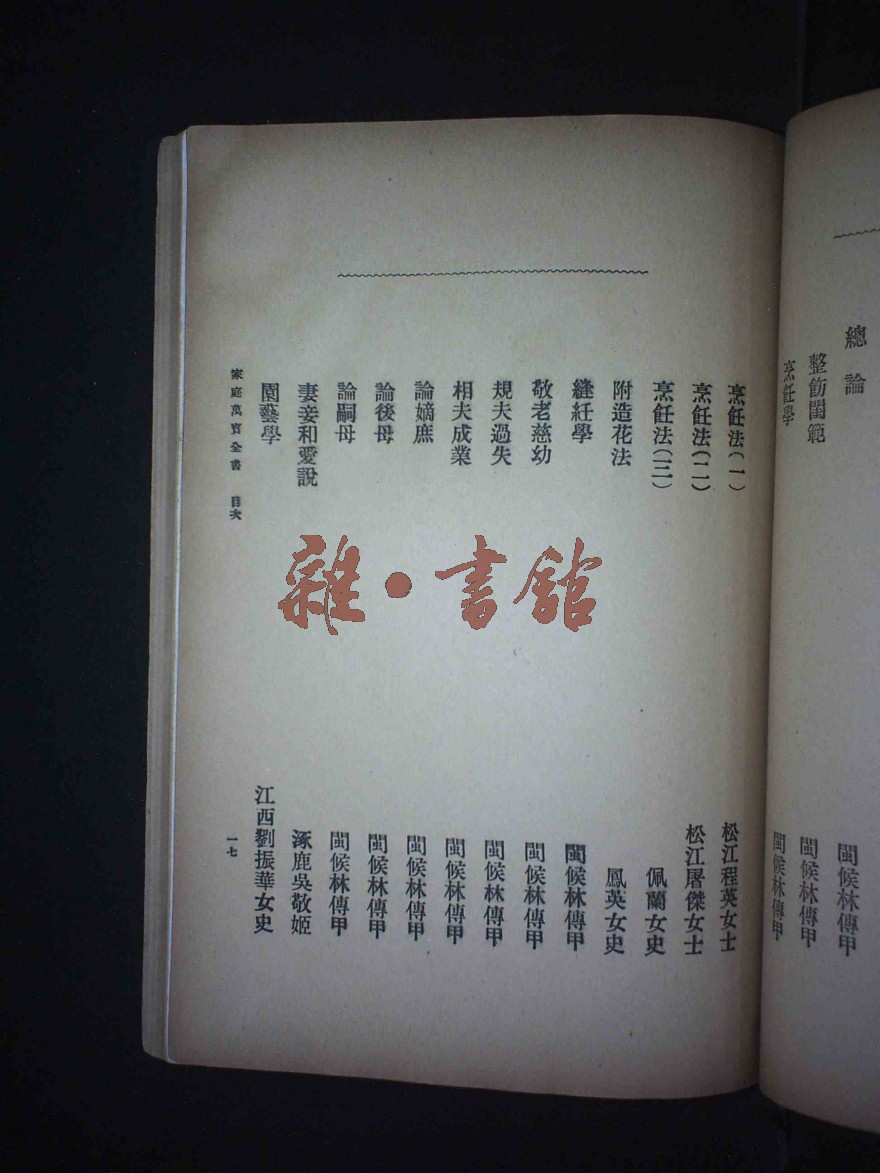 總論
閩候林傳甲
整飭閨範
閩候林傳甲
烹飪學
閩候林傳甲
烹飪法(一)
松江程英女士
烹飪法(二)
松江屠傑女士
烹飪法(三)
佩蘭女史
附造花法
鳳英女史
縫紝學
閩候林傳甲
敬老慈幼
閩候林傳甲
規夫過失
閩候林傳甲
相夫成業
閩候林傳甲
論嫡庶
閩候林傳甲
論後母
閩候林傳甲
論嗣母
閩候林傳甲
妻妾和愛說
涿鹿吳敬姬
園藝學
江西劉振華女史
家庭萬寶全書 目次
一七
雜·書館